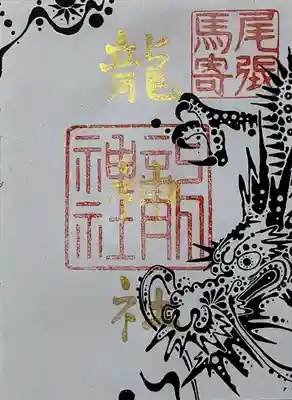 尾張
馬寄
龍神社
龍神社